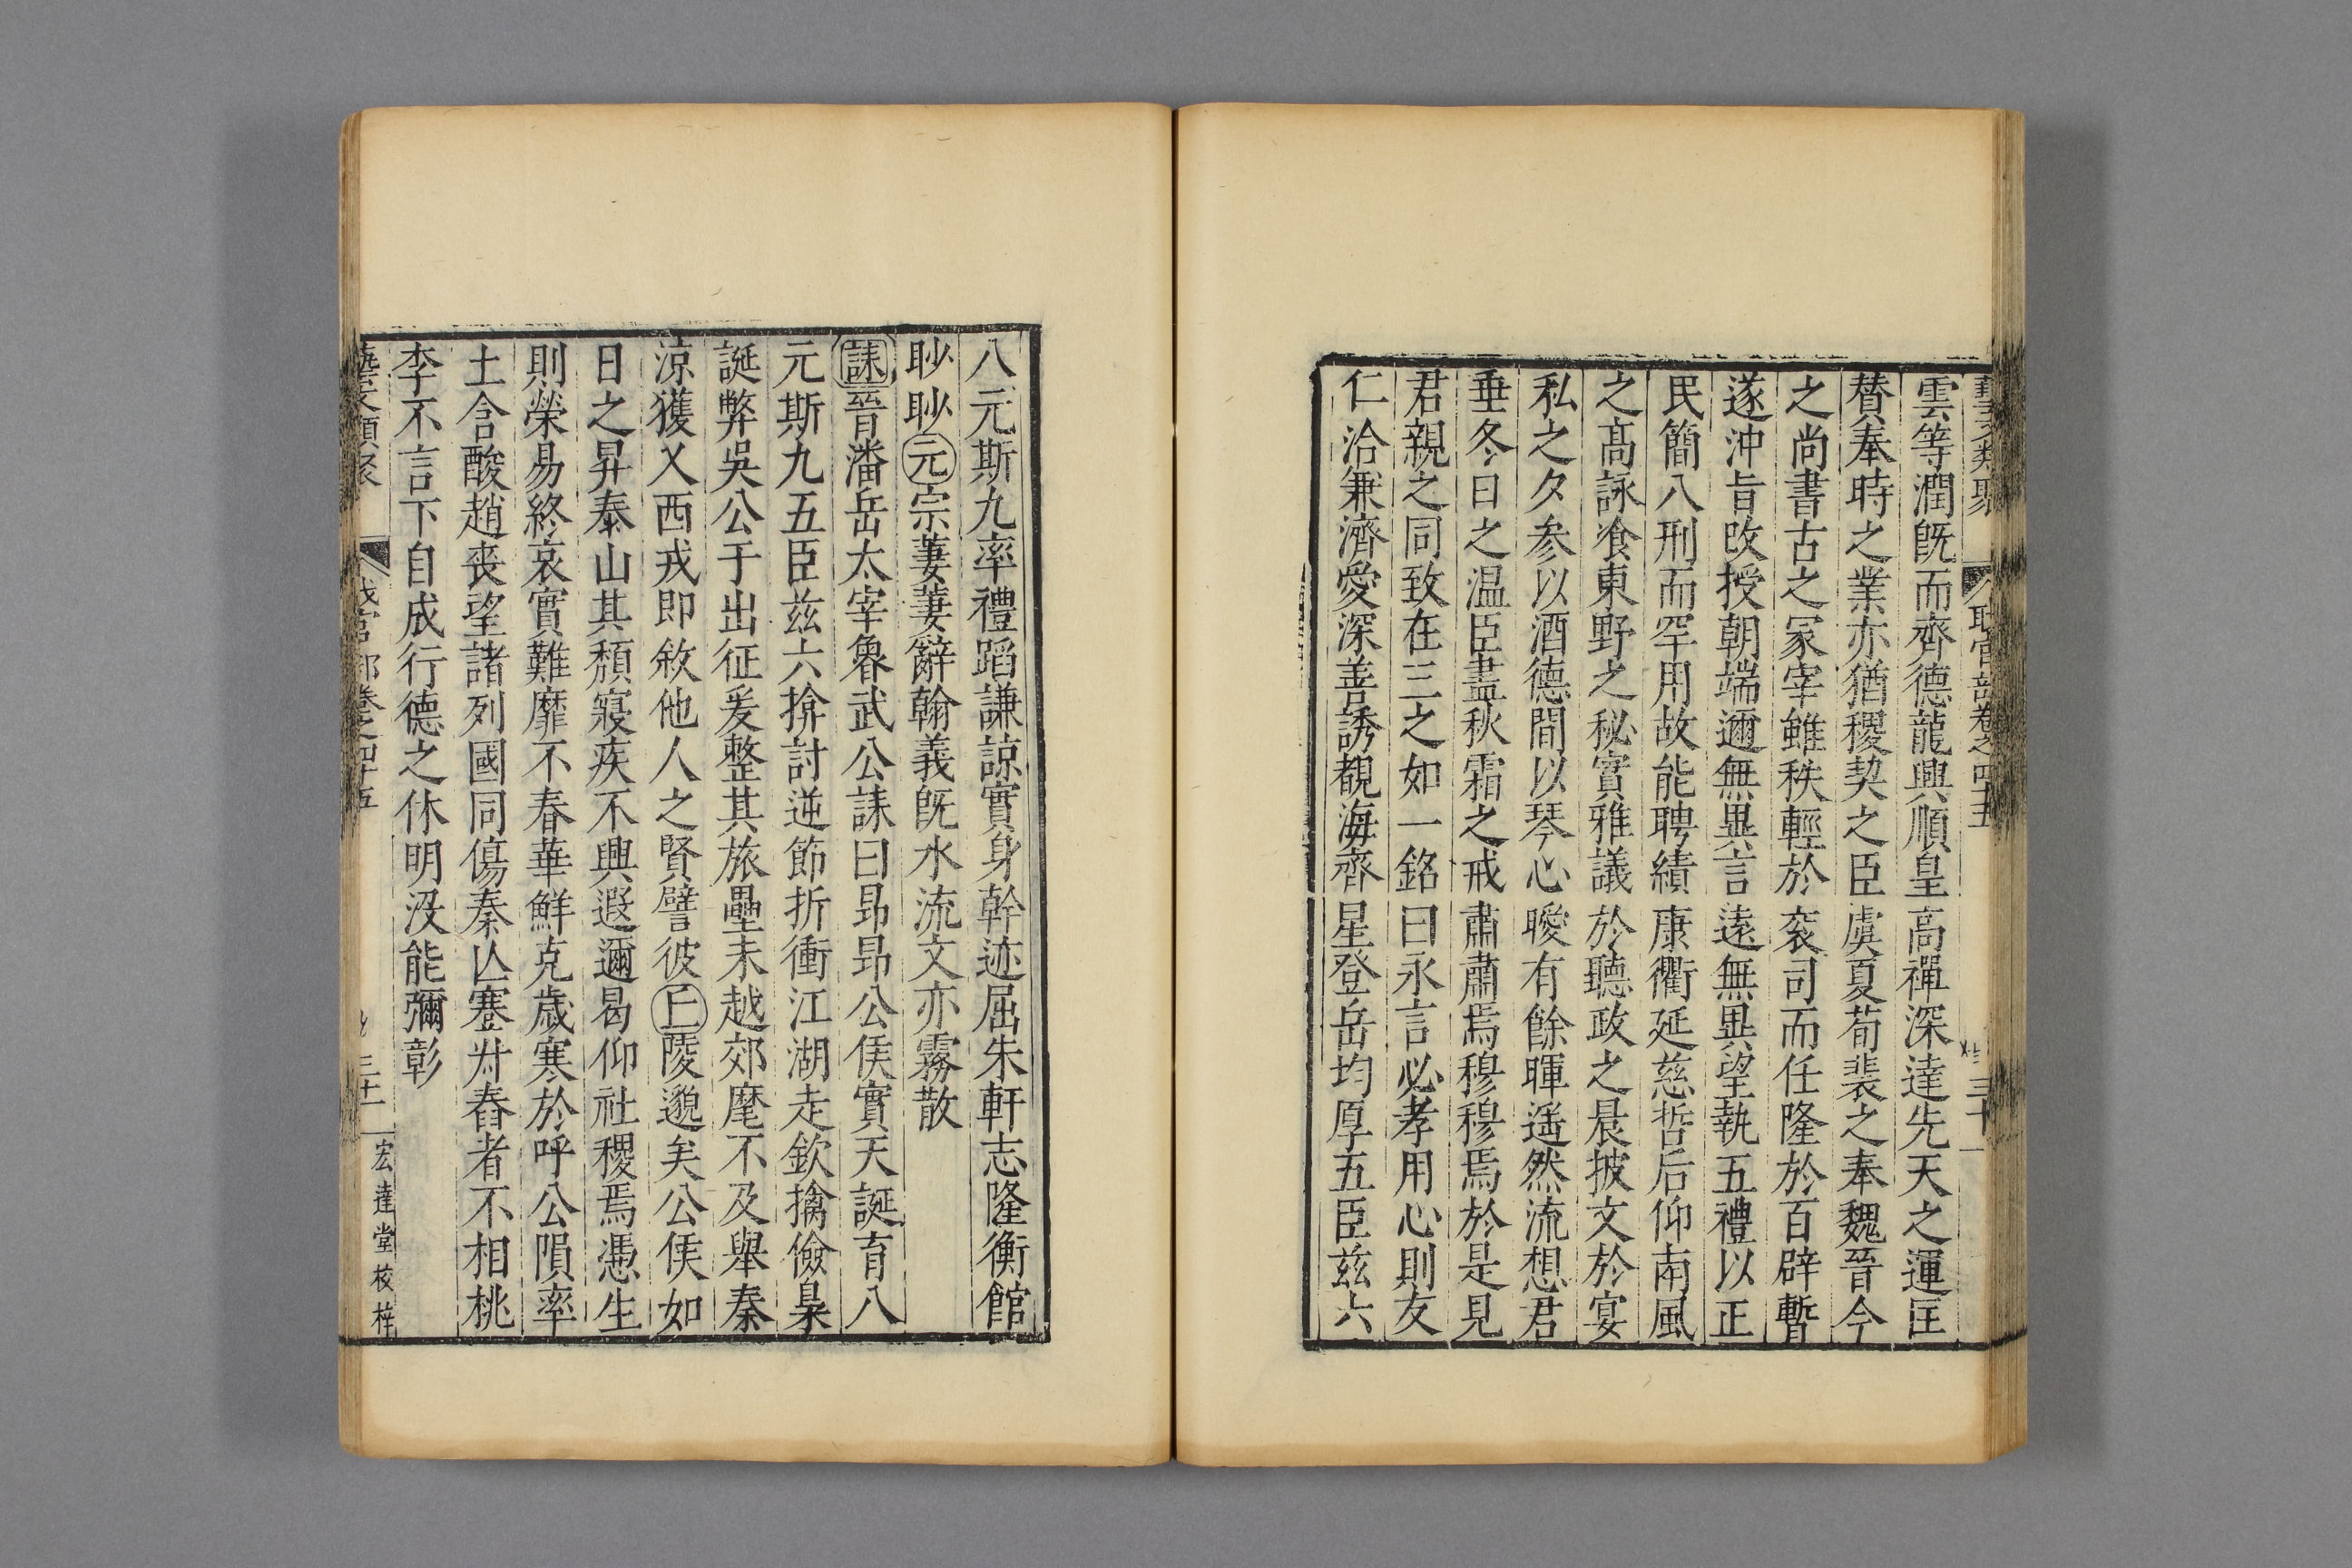 藝文類聚 職官部卷之四十五 三十一
雲等潤旣而齊德龍興順皇高禪深達先天之運匡
賛奉時之業亦猶稷契之臣虞夏荀裴之奉魏晉今
之尚書古之冢宰雖秩輕於衮司而任隆於百辟暫
遂沖旨改授朝端邇無異言遠無異望執五禮以正
民簡八刑而罕用故能聘績康衢延慈哲后仰南風
之高詠飡東野之秘實雅議於聽政之晨披文於宴
私之夕参以酒德間以琴心曖有餘暉遥然流想君
垂冬日之温臣盡秋霜之戒肅肅焉穆穆焉於是見
君親之同致在三之如一銘曰永言必孝用心則友
仁洽兼濟愛深善誘覩海齊星登岳均厚五臣兹六
八元斯九率禮蹈謙諒實身幹迹屈朱軒志隆衡館
眇眇元宗萋萋辭翰義旣水流文亦霧散
誄晉潘岳太宰魯武公誄曰昂昂公侯實天誕育八
元斯九五臣兹六揜討逆節折衝江湖走欽擒儉梟
誕弊吳公于出征爰整其旅壘未越郊麾不及舉秦
涼獲乂西戎即敘他人之賢譬彼丘陵邈矣公侯如
日之昇泰山其頹寢疾不興遐邇曷仰社稷焉憑生
則榮易終哀實難靡不春華鮮克歲寒於呼公隕率
土含酸趙喪望諸列國同傷秦亾蹇叔舂者不相桃
李不言下自成行德之休明沒能彌彰
藝文類聚 職官部卷之四十五 三十一 宏達堂校梓